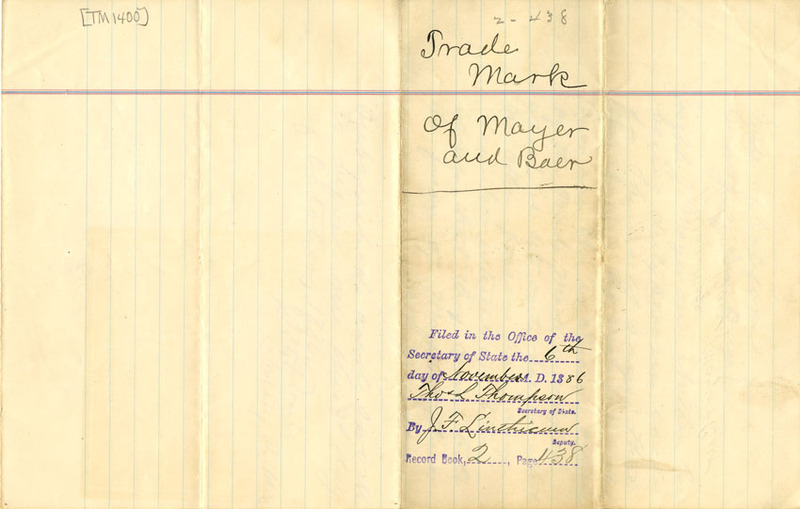 [TM1400]
2-438
Trade
Mark
Of Mayer
and Baer
Filed in the Office of the
Secretary of State the 6th
day of November A. D. 1886
Thos L Thompson
Secretary of State.
By J F Linthicum
Deputy.
Record Book, 2, Page 438